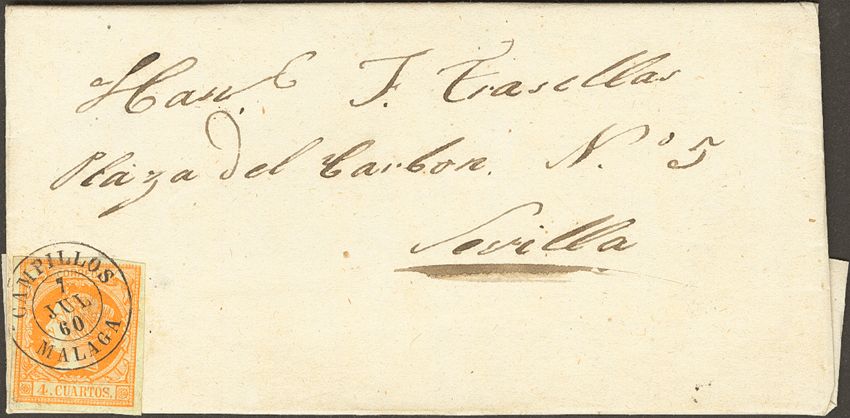 F. Trasellas
Plaza del Carbon. N.º 5
Sevilla
CAMPILLOS
7
JUL
60
MALAGA
4. CUARTOS.